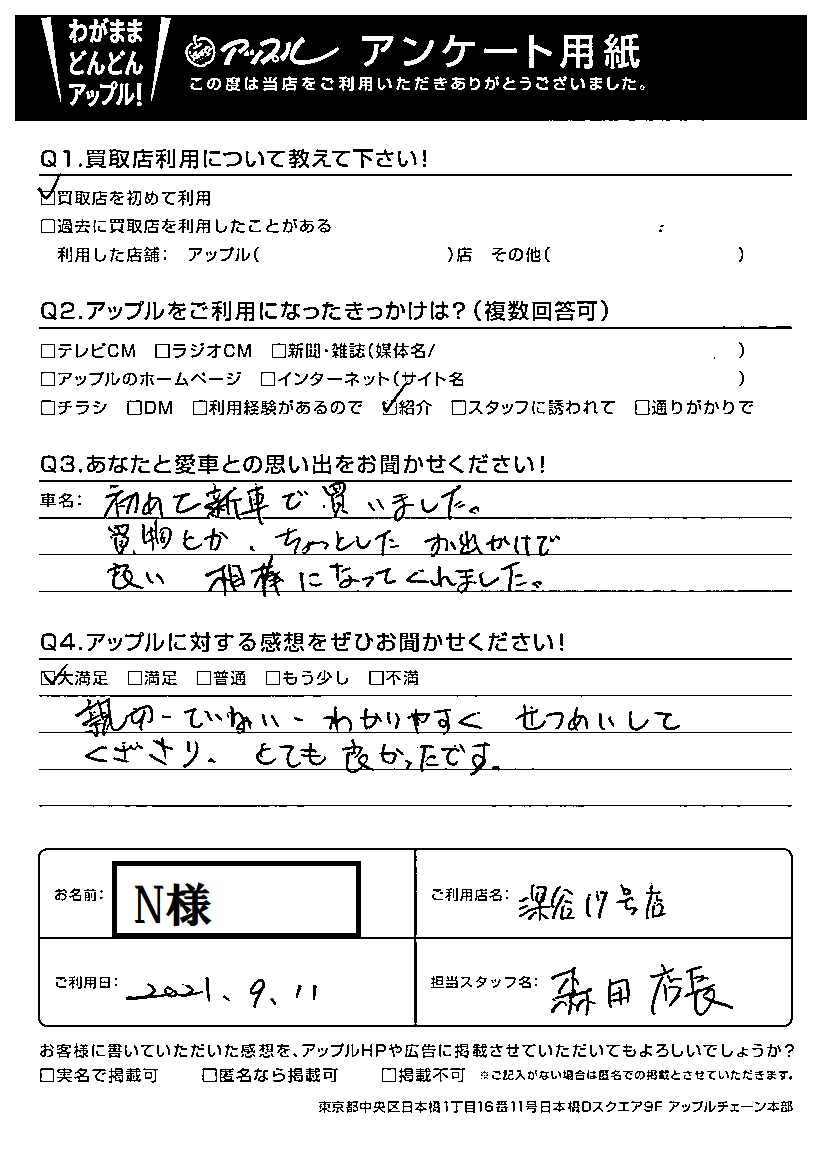 わがまま
どんどん
アップル!
アップル アンケート用紙
この度は当店をご利用いただきありがとうございました。
Q1.買取店利用について教えて下さい!
☑買取店を初めて利用
□過去に買取店を利用したことがある
利用した店舗: アップル( )店 その他( )
Q2.アップルをご利用になったきっかけは?(複数回答可)
□テレビCM □ラジオCM □新聞・雑誌(媒体名/ )
□アップルのホームページ □インターネット(サイト名 )
□チラシ □DM □利用経験があるので ☑紹介 □スタッフに誘われて □通りがかりで
Q3.あなたと愛車との思い出をお聞かせください!
車名: 初めて新車で買いました。
買物とか、ちょっとしたお出かけで
良い 相棒になってくれました。
Q4.アップルに対する感想をぜひお聞かせください!
☑大満足 □満足 □普通 □もう少し □不満
親切-ていねい-わかりやすく せつめいして
くださり、とても良かったです。
お名前: N様
ご利用店名: 深谷17号店
ご利用日: 2021、9、11
担当スタッフ名: 森田 店長
お客様に書いていただいた感想を、アップルHPや広告に掲載させていただいてもよろしいでしょうか?
□実名で掲載可 □匿名なら掲載可 □掲載不可 ※ご記入がない場合は匿名での掲載とさせていただきます。
東京都中央区日本橋1丁目16番11号日本橋Dスクエア9F アップルチェーン本部